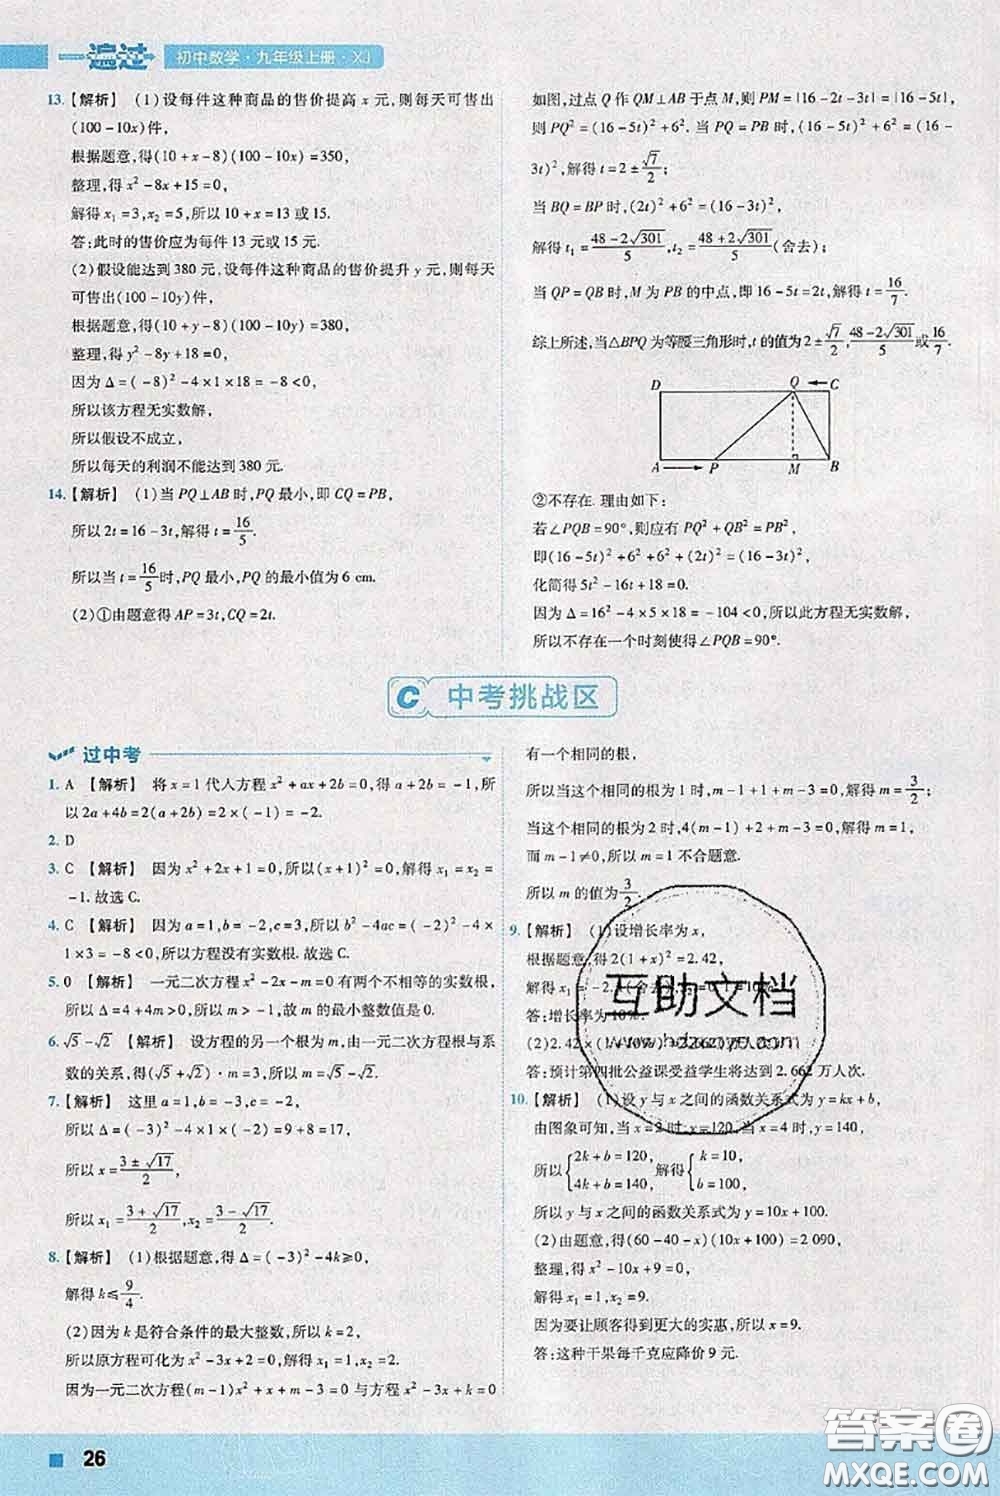 一遍过 初中数学·九年级上册·XJ
13.【解析】 (1)设每件这种商品的售价提高 x 元,则每天可售出
(100-10x)件,
根据题意,得(10+x-8)(100-10x)=350,
整理,得 x²-8x+15=0,
解得 x₁=3,x₂=5,所以 10+x=13 或 15.
答:此时的售价应为每件 13 元或 15 元.
(2)假设能达到 380 元,设每件这种商品的售价提升 y 元,则每天
可售出(100-10y)件,
根据题意,得(10+y-8)(100-10y)=380,
整理,得 y²-8y+18=0,
因为 Δ=(-8)²-4×1×18=-8<0,
所以该方程无实数解,
所以假设不成立,
所以每天的利润不能达到 380 元.
14.【解析】 (1)当 PQ⊥AB 时,PQ 最小,即 CQ=PB,
所以 2t=16-3t,解得 t=16/5.
所以当 t=16/5时,PQ 最小,PQ 的最小值为 6 cm.
(2)①由题意得 AP=3t,CQ=2t.
如图,过点 Q 作 QM⊥AB 于点 M,则 PM=|16-2t-3t|=|16-5t|,
则 PQ²=(16-5t)²+6². 当 PQ=PB 时,(16-5t)²+6²=(16-
3t)²,解得 t=2±√7/2;
当 BQ=BP 时,(2t)²+6²=(16-3t)²,
解得 t₁=(48-2√301)/5,t₂=(48+2√301)/5(舍去);
当 QP=QB 时,M 为 PB 的中点,即 16-5t=2t,解得 t=16/7.
综上所述,当△BPQ 为等腰三角形时,t 的值为 2±√7/2,(48-2√301)/5或16/7.
D Q C
A P M B
②不存在. 理由如下:
若∠PQB=90°,则应有 PQ²+QB²=PB²,
即(16-5t)²+6²+6²+(2t)²=(16-3t)²,
化简得 5t²-16t+18=0.
因为 Δ=16²-4×5×18=-104<0,所以此方程无实数解,
所以不存在一个时刻使得∠PQB=90°.
C 中考挑战区
过中考
1. A 【解析】 将 x=1 代入方程 x²+ax+2b=0,得 a+2b=-1,所
以 2a+4b=2(a+2b)=2×(-1)=-2.
2. D
3. C 【解析】 因为 x²+2x+1=0,所以(x+1)²=0,解得 x₁=x₂=
-1.故选 C.
4. C 【解析】 因为 a=1,b=-2,c=3,所以 b²-4ac=(-2)²-4×
1×3=-8<0,所以方程没有实数根. 故选 C.
5. 0 【解析】 一元二次方程 x²-2x-m=0 有两个不相等的实数根,
所以 Δ=4+4m>0,所以 m>-1,故 m 的最小整数值是 0.
6. √5-√2 【解析】 设方程的另一个根为 m,由一元二次方程根与系
数的关系,得(√5+√2)·m=3,解得 m=√5-√2.
7.【解析】 这里 a=1,b=-3,c=-2,
因为 Δ=(-3)²-4×1×(-2)=9+8=17,
所以 x=(3±√17)/2,
所以 x₁=(3+√17)/2,x₂=(3-√17)/2.
8.【解析】 (1)根据题意,得 Δ=(-3)²-4k≥0,
解得 k≤9/4.
(2)因为 k 是符合条件的最大整数,所以 k=2,
所以原方程可化为 x²-3x+2=0,解得 x₁=1,x₂=2,
因为一元二次方程(m-1)x²+x+m-3=0 与方程 x²-3x+k=0
有一个相同的根,
所以当这个相同的根为 1 时,m-1+1+m-3=0,解得 m=3/2;
当这个相同的根为 2 时,4(m-1)+2+m-3=0,解得 m=1,
而 m-1≠0,所以 m=1 不合题意.
所以 m 的值为3/2.
9.【解析】 (1)设增长率为 x,
根据题意,得 2(1+x)²=2.42,
解得 x₁=-2.1(舍去),x₂=0.1=10%.
答:增长率为 10%.
(2)2.42×(1+10%)=2.662(万人).
答:预计第四批公益课受益学生将达到 2.662 万人次.
10.【解析】 (1)设 y 与 x 之间的函数关系式为 y=kx+b,
由图象可知,当 x=2 时,y=120,当 x=4 时,y=140,
所以{2k+b=120, 4k+b=140,解得{k=10, b=100,
所以 y 与 x 之间的函数关系式为 y=10x+100.
(2)由题意,得(60-40-x)(10x+100)=2 090,
整理,得 x²-10x+9=0,
解得 x₁=1,x₂=9.
因为要让顾客得到更大的实惠,所以 x=9.
答:这种干果每千克应降价 9 元.
互助文档
26
答案圈
MXQE.COM